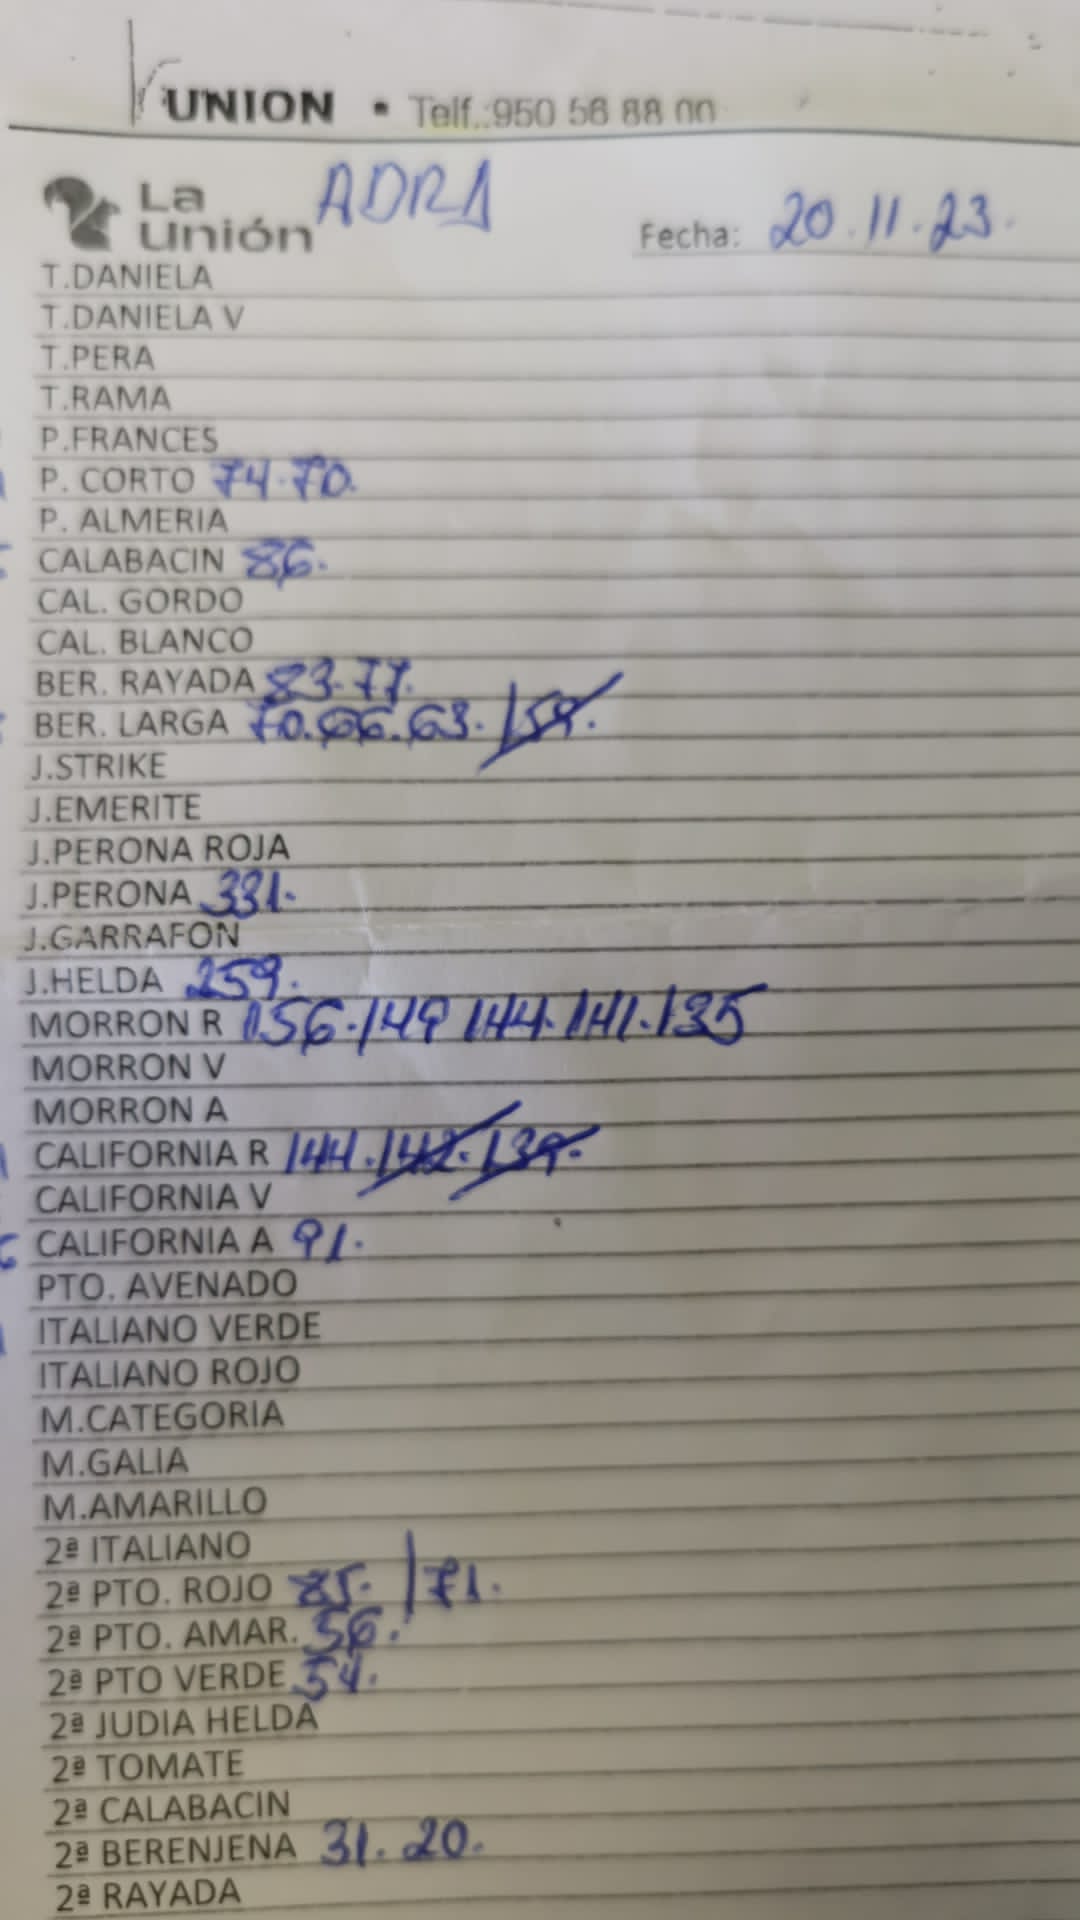 UNION • Telf.:950 56 88 00
La Unión ADRA Fecha: 20.11.23.
T.DANIELA
T.DANIELA V
T.PERA
T.RAMA
P.FRANCES
P. CORTO 74.70.
P. ALMERIA
CALABACIN 86.
CAL. GORDO
CAL. BLANCO
BER. RAYADA 83.77.
BER. LARGA 70.66.63. /59.
J.STRIKE
J.EMERITE
J.PERONA ROJA
J.PERONA 331.
J.GARRAFON
J.HELDA 259.
MORRON R 156.149 144.141.135
MORRON V
MORRON A
CALIFORNIA R 144.142.139.
CALIFORNIA V
CALIFORNIA A 91.
PTO. AVENADO
ITALIANO VERDE
ITALIANO ROJO
M.CATEGORIA
M.GALIA
M.AMARILLO
2ª ITALIANO
2ª PTO. ROJO 85. /71.
2ª PTO. AMAR. 56.
2ª PTO VERDE 54.
2ª JUDIA HELDA
2ª TOMATE
2ª CALABACIN
2ª BERENJENA 31. 20.
2ª RAYADA